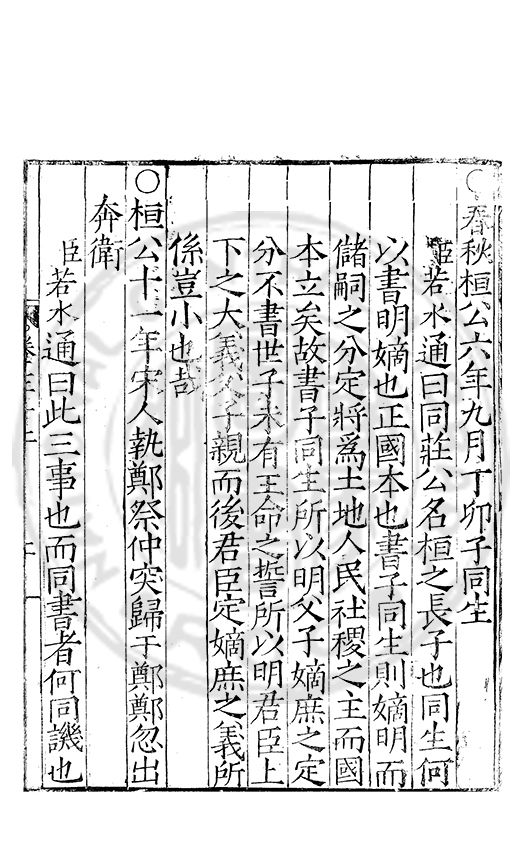 ○春秋桓公六年九月丁卯子同生
臣若水通曰同莊公名桓之長子也同生何
以書明嫡也正國本也書子同生則嫡明而
儲嗣之分定將爲土地人民社稷之主而國
本立矣故書子同生所以明父子嫡庶之定
分不書世子未有王命之誓所以明君臣上
下之大義父子親而後君臣定嫡庶之義所
係豈小也哉
○桓公十一年宋人執鄭祭仲突歸于鄭鄭忽出
奔衛
臣若水通曰此三事也而同書者何同譏也